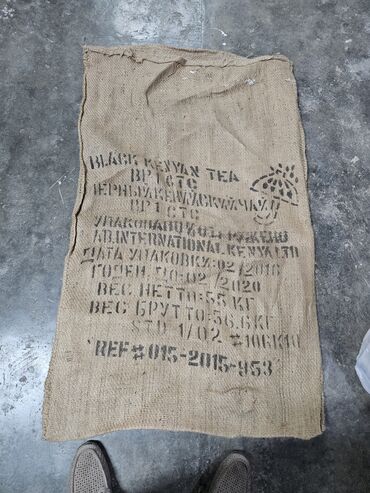 BLACK KENYAN TEA
BP1 CTC
ЧЕРНЫЙ КЕНИЙСКИЙ ЧАЙ
BP1 CTC
УПАКОВАНО И ОТГРУЖЕНО
INTERNATIONAL KENYA LTD
ДАТА УПАКОВКИ: 02/2018
ГОДЕН ДО: 02/2020
ВЕС НЕТТО: 55 КГ
ВЕС БРУТТО: 56.6 КГ
STD 1/02
REF#015-2015-953